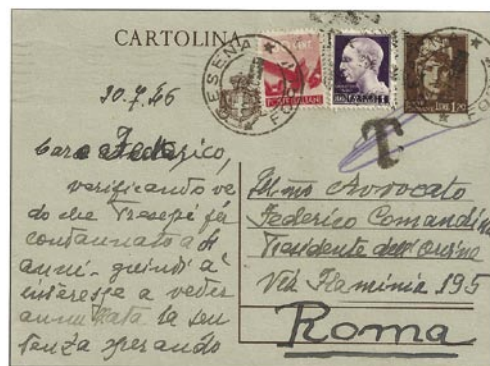 CARTOLINA
CESENA
POSTE ITALIANE
LIRE 1,20
T
30.7.46
Caro Federico,
verificando ve
do che Trecepi fu
condannato a
anni - quindi a'
interesse a veder
annullata la sen
tenza sperando
Ill.mo Avvocato
Federico Comandini
Presidente dell'Ordine
Via Flaminia 195
Roma